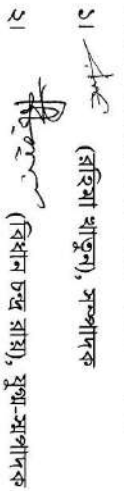 ১। (রহিমা খাতুন), সম্পাদক
২। (বিধান চন্দ্র রায়), যুগ্ম-সম্পাদক